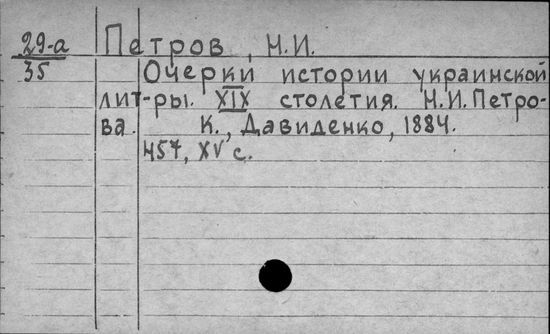 29-а Петров, Н.И.
35 Очерки истории украинской
лит-ры. XIX столетия. Н.И. Петро-
ва. К., Давиденко, 1884.
457, XV с.